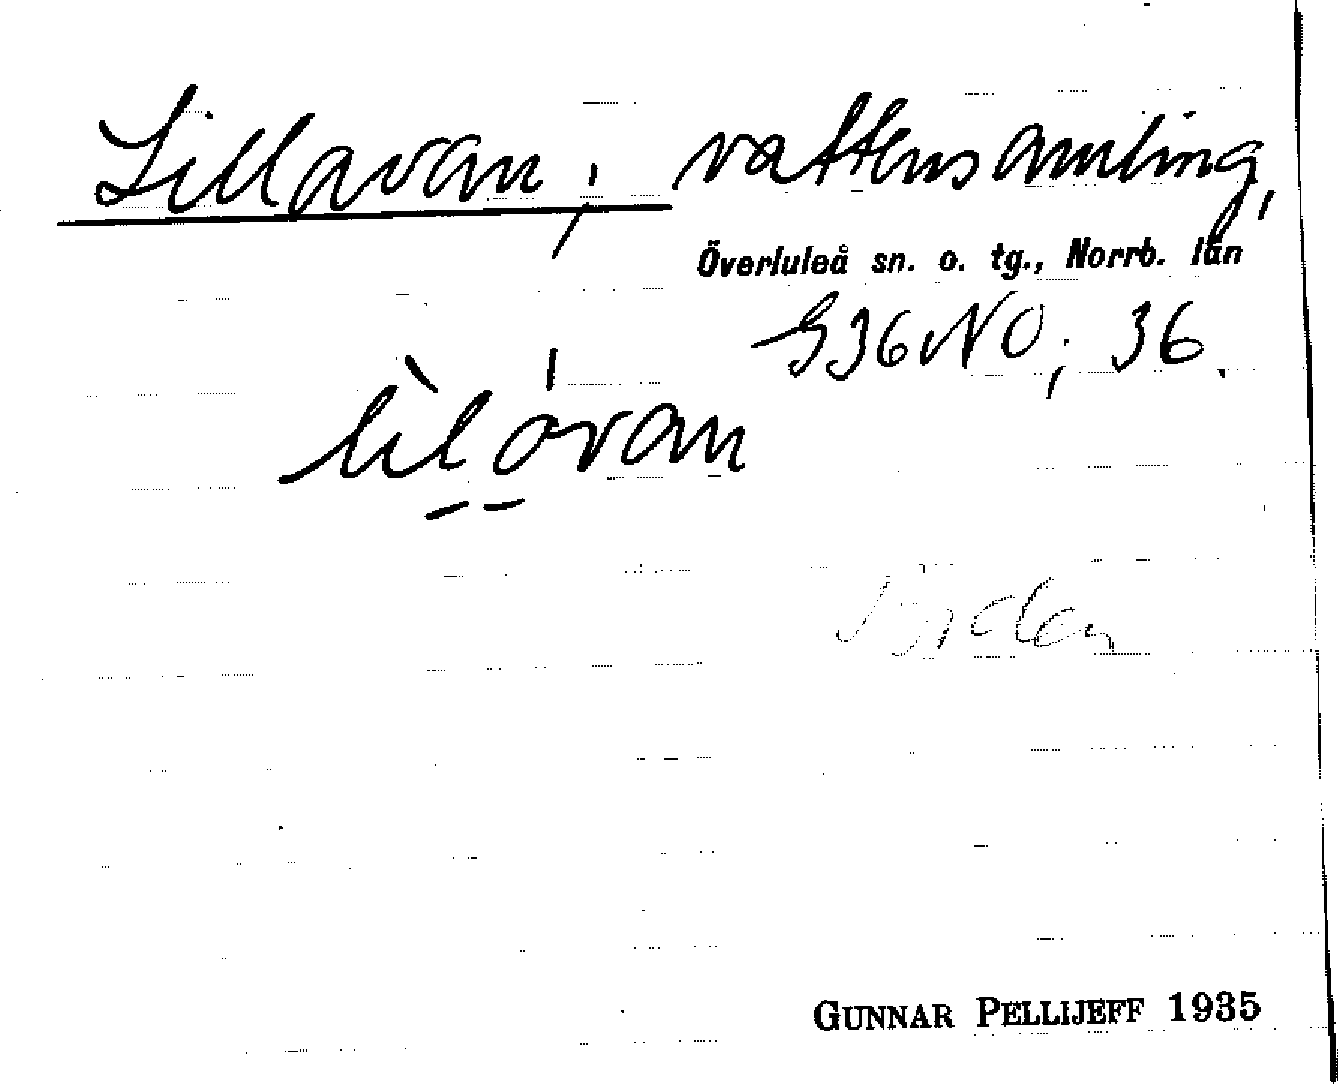 Lillavan; vattensamling,
Överluleå sn. o. tg., Norrb. län
S36NO; 36.
lìl ávan
GUNNAR PELLIJEFF 1935